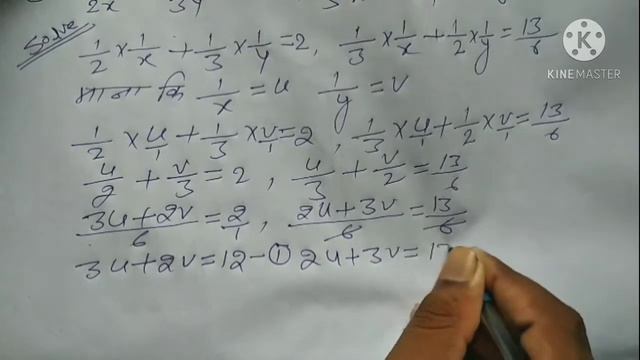 2x 3y
Solve 1/2 × 1/x + 1/3 × 1/y = 2, 1/3 × 1/x + 1/2 × 1/y = 13/6
माना कि 1/x = u 1/y = v
1/2 × u/1 + 1/3 × v/1 = 2, 1/3 × u/1 + 1/2 × v/1 = 13/6
u/2 + v/3 = 2, u/3 + v/2 = 13/6
3u+2v/6 = 2/1, 2u+3v/6 = 13/6
3u+2v=12-① 2u+3v=13
KINEMASTER